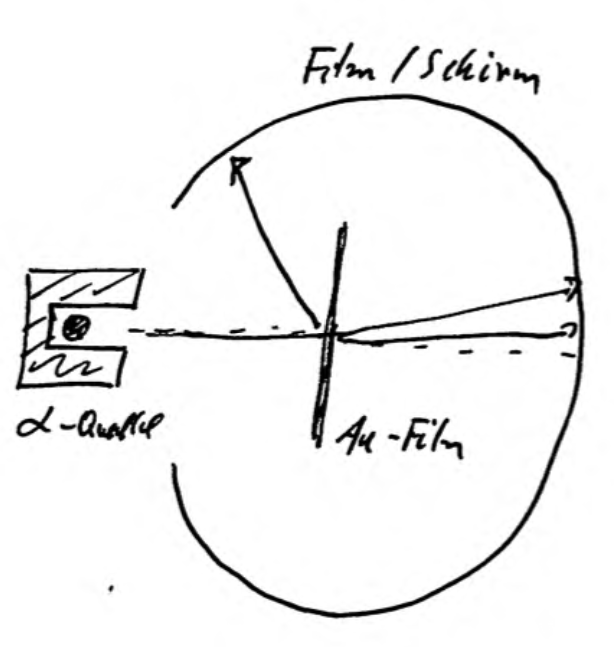 Film / Schirm
α-Quelle
Au-Film